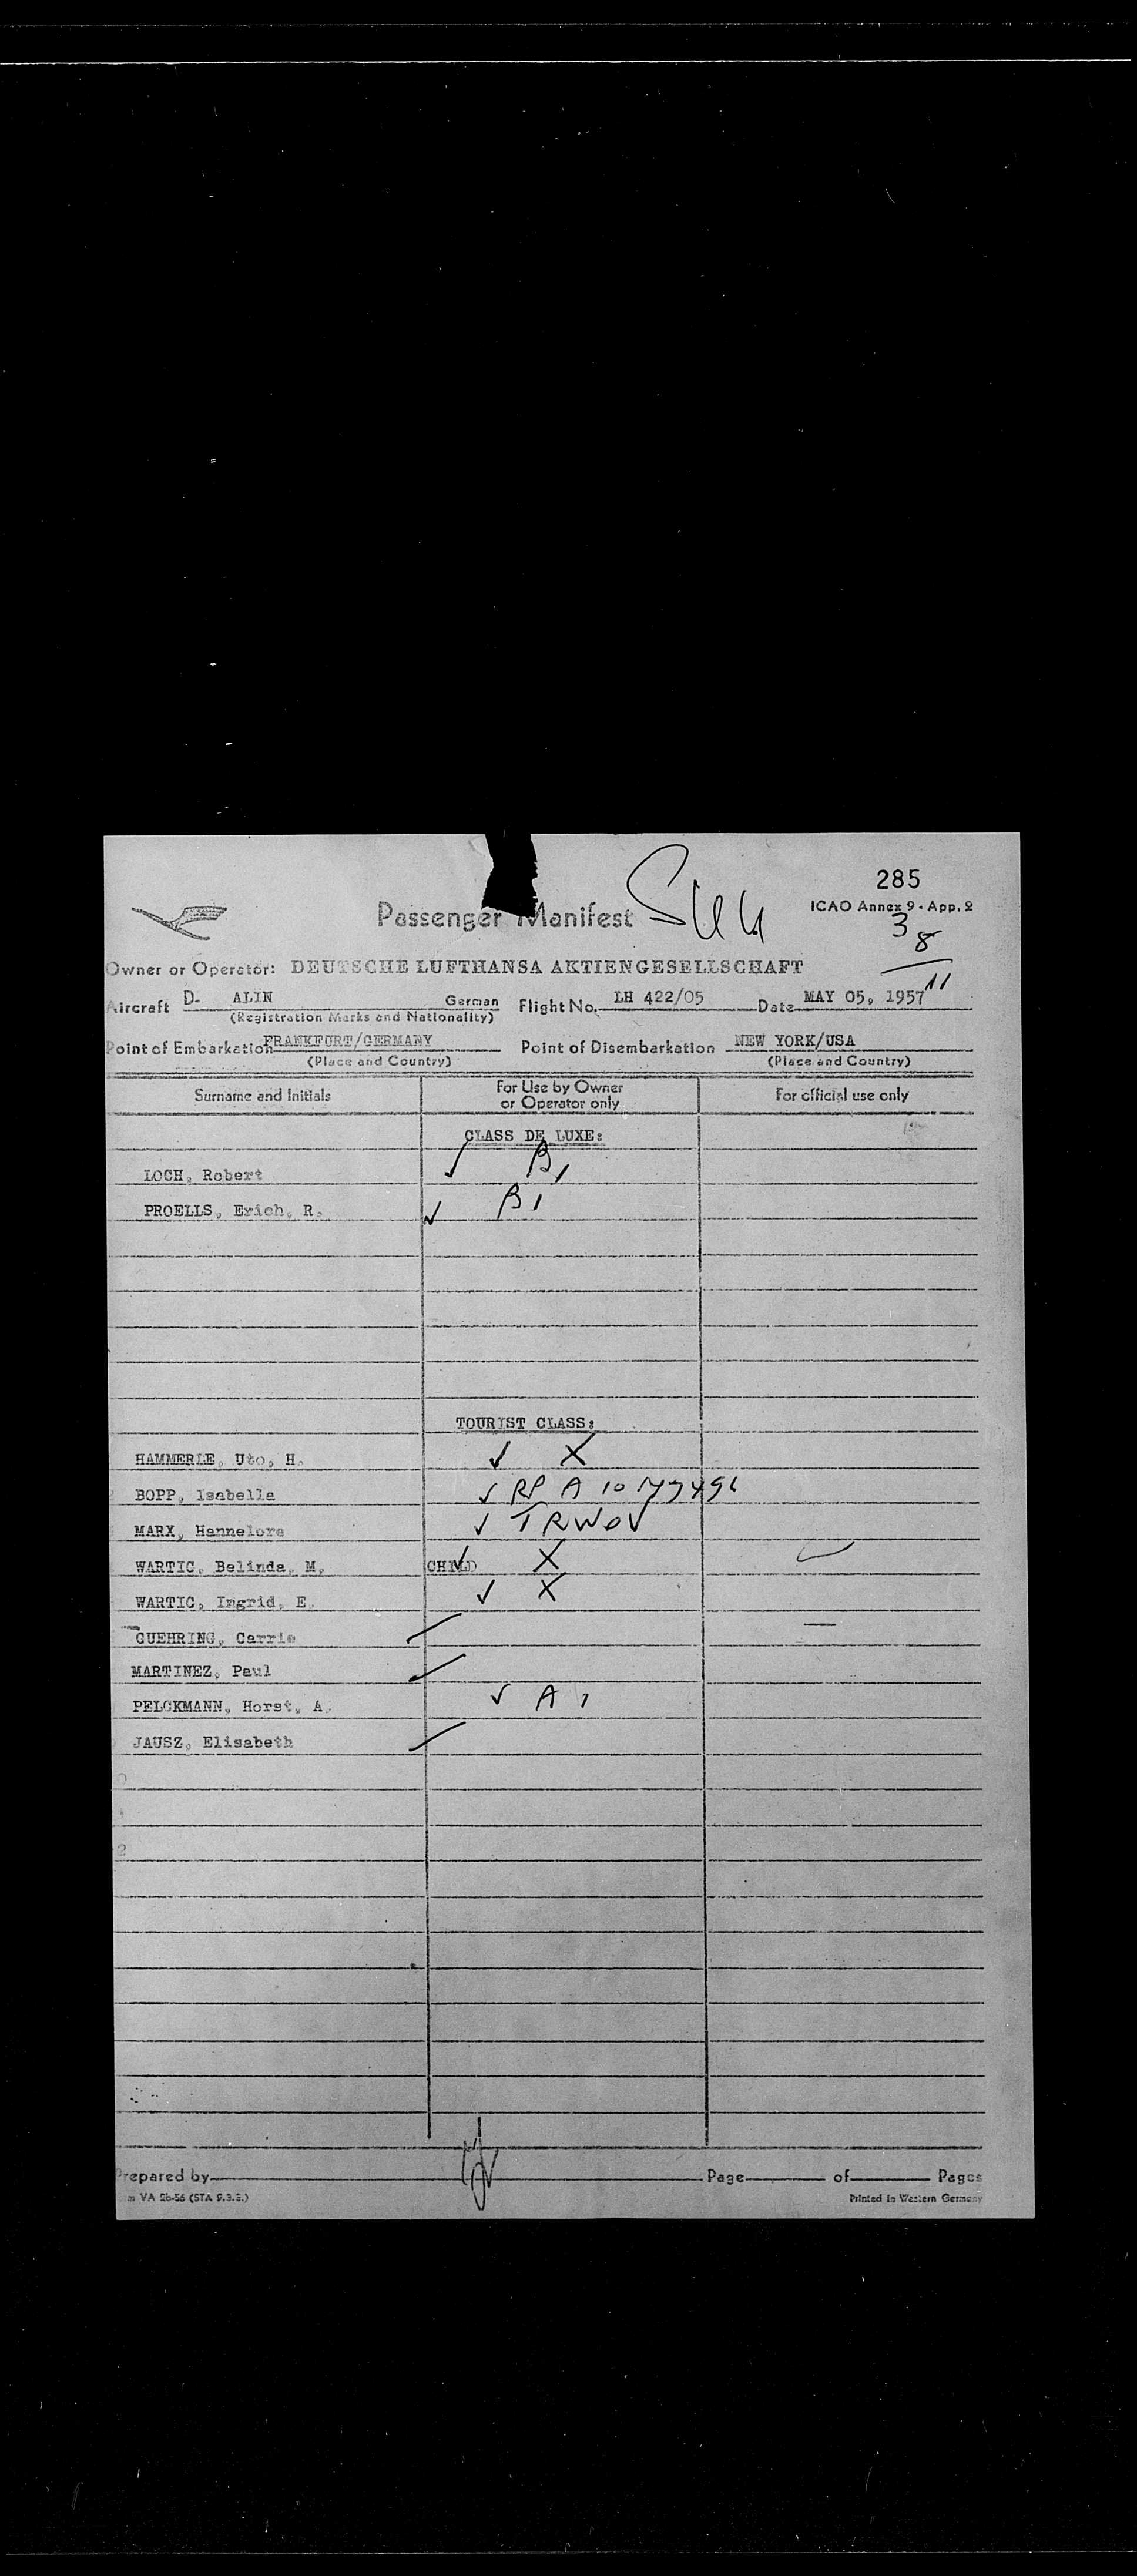 285
Passenger Manifest
ICAO Annex 9 - App. 2
3
8
11
Owner or Operator: DEUTSCHE LUFTHANSA AKTIENGESELLSCHAFT
Aircraft D- ALIN German Flight No. LH 422/05 Date MAY 05, 1957
(Registration Marks and Nationality)
Point of Embarkation FRANKFURT/GERMANY Point of Disembarkation NEW YORK/USA
(Place and Country) (Place and Country)
Surname and Initials For Use by Owner or Operator only For official use only
CLASS DE LUXE:
LOCH, Robert ✓ B1
PROELLS, Erich, R. ✓ B1
TOURIST CLASS:
HAMMERLE, Uto, H. ✓ X
BOPP, Isabella ✓ RP A 10
MARX, Hannelore ✓ TRWOV
WARTIC, Belinda, M. CHILD ✓ X
WARTIC, Ingrid, E. ✓ X
GUEHRING, Carrie ✓ —
MARTINEZ, Paul ✓
PELCKMANN, Horst, A. ✓ A 1
JAUSZ, Elisabeth ✓
2
Prepared by Page of Pages
VA 26-56 (STA 9.3.3.) Printed in Western Germany